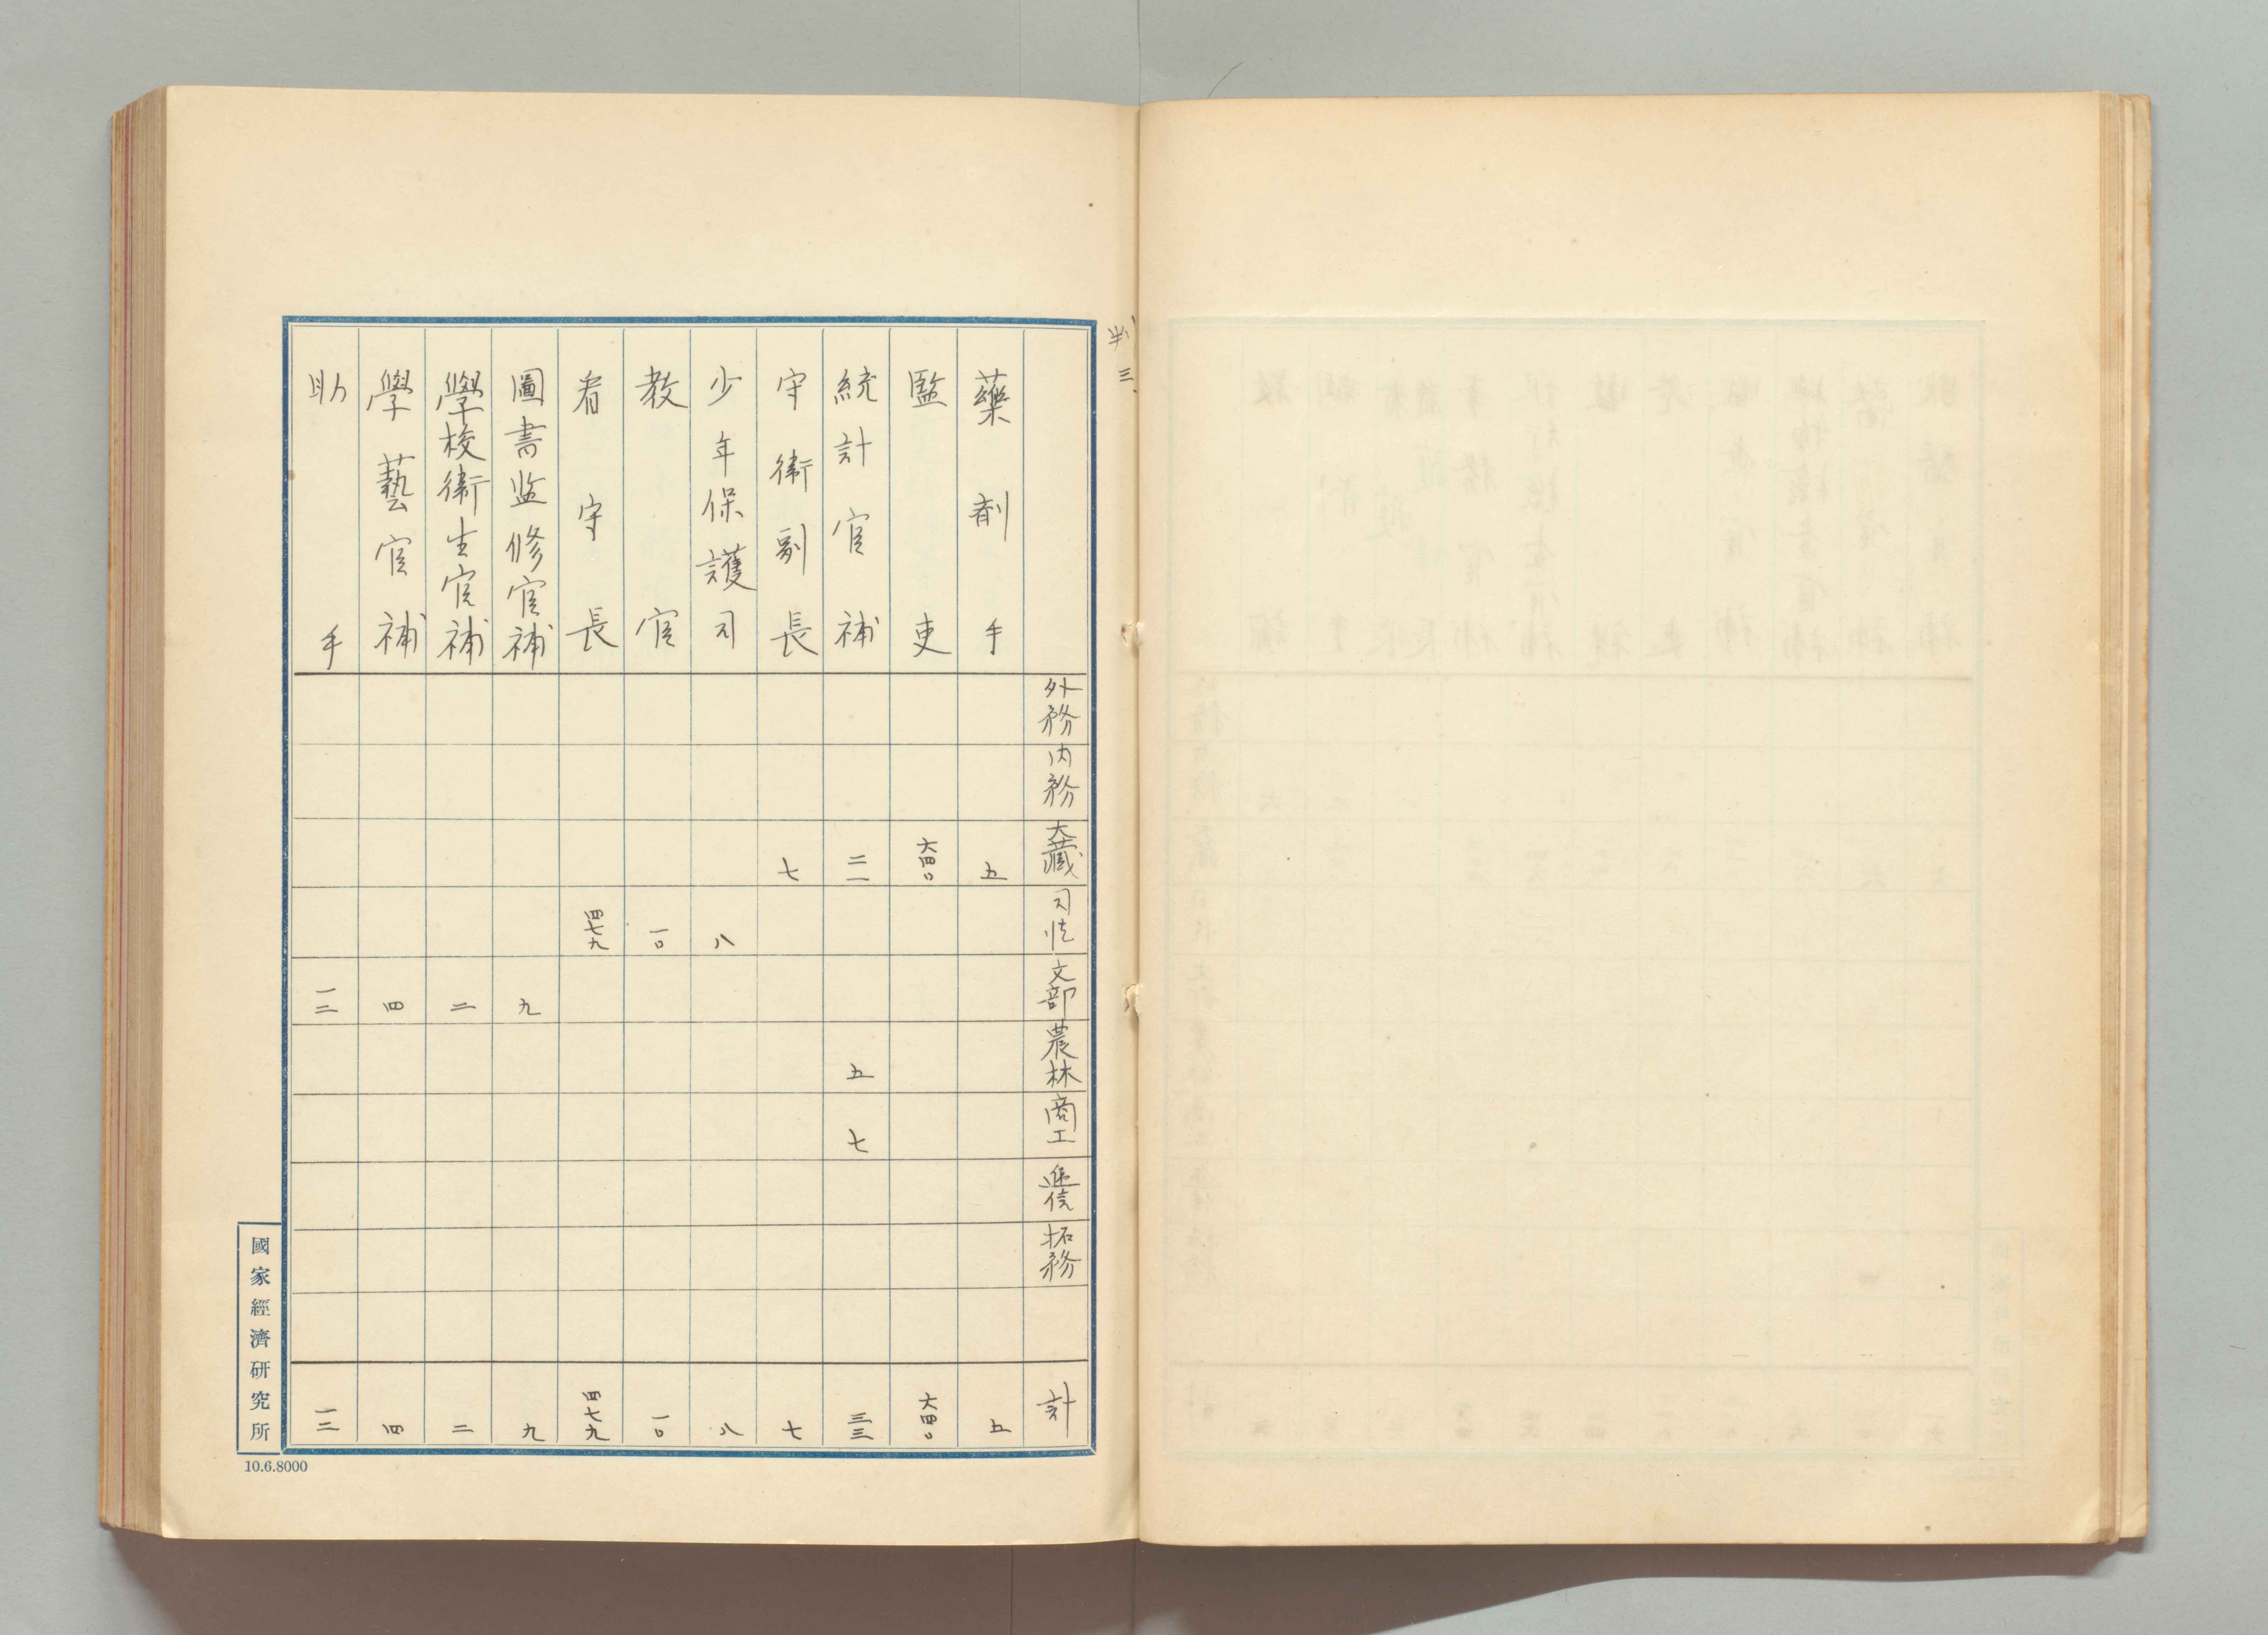 判三、
外務 内務 大藏 司法 文部 農林 商工 逓信 拓務 計
藥剤手 五 五
監吏 六四〇 六四〇
統計官補 二一 五 七 三三
守衛副長 七 七
少年保護司 八 八
教官 一〇 一〇
看守長 四七九 四七九
圖書监修官補 九 九
學校衛生官補 二 二
學藝官補 四 四
助手 一二 一二
國家經濟研究所
10.6.8000